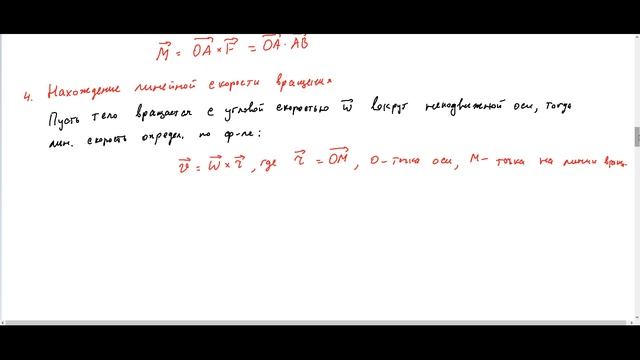 M⃗ = OA⃗ × F⃗ = OA⃗ · AB⃗
4. Нахождение линейной скорости вращения
Пусть тело вращается с угловой скоростью w⃗ вокруг неподвижной оси, тогда
лин. скорость определ. по ф-ле:
v⃗ = w⃗ × r⃗, где r⃗ = OM⃗, O – точка оси, M – точка на линии вращ